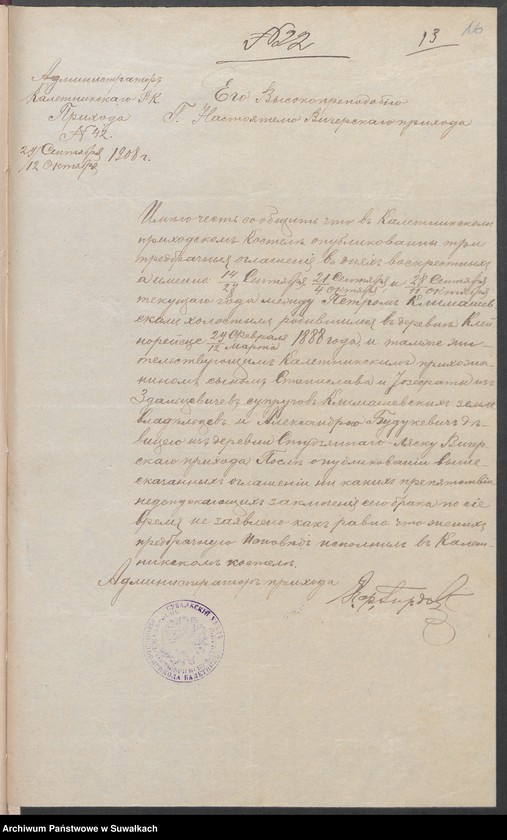 16
№ 22
13
Администраторъ
Калетникскаго Р.К.
Прихода
№ 42.
29 Сентября
/12 Октября 1908 г.
Его Высокопреподобію
Г. Настоятелю Вигерскаго прихода
Имѣю честь сообщить что въ Калетникскомъ
приходскомъ костелѣ опубликованны три
предбрачныя оглашенія въ дняхъ воскресныхъ
а именно 14/27 Сентября 21 Сентября/4 Октября и 28 Сентября/11 Октября
текущаго года между Петромъ Климашев-
скимъ холостымъ родившимся въ деревнѣ
29 Февраля/12 Марта 1888 года и тамъ же жи-
тельствующимъ Калетникскимъ прихожа-
ниномъ сыномъ Станислава и Іозефаты изъ
супруговъ Климашевскихъ земле-
владѣльцевъ и Александрою Будукевичъ дѣ-
вицею изъ деревни Вигер-
скаго прихода Послѣ опубликованіи выше-
сказанныхъ оглашеній ни какихъ препятствій
недопускающихъ заключенія сего брака по сіе
время не заявлено какъ равно что женихъ
предбрачную исповѣдь исполнилъ въ Калет-
никскомъ костелѣ.
Администраторъ прихода
Archiwum Państwowe w Suwałkach